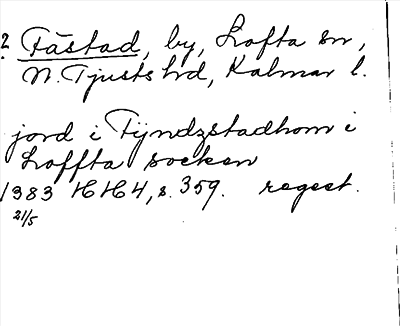 2 Fästad, by, Lofta sn,
N. Tjusts hd, Kalmar l.
jord i Fyndzstadhom i
Loffta socken
1383 HH4, s. 359. regest.
21/5